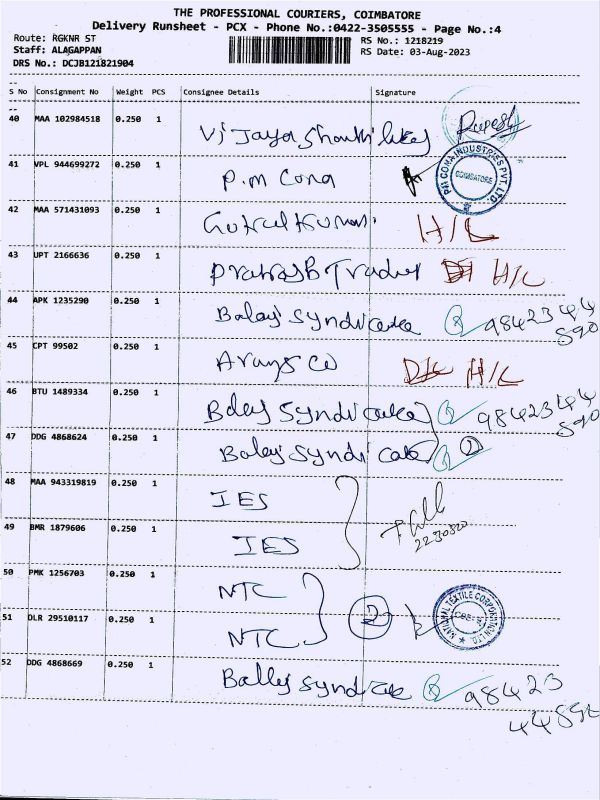 THE PROFESSIONAL COURIERS, COIMBATORE
Delivery Runsheet - PCX - Phone No.:0422-3505555 - Page No.:4
Route: RGKNR ST
RS No.: 1218219
Staff: ALAGAPPAN
RS Date: 03-Aug-2023
DRS No.: DCJB121821904
S No Consignment No Weight PCS Consignee Details Signature
40 MAA 102984518 0.250 1 Rupesh
41 VPL 944699272 0.250 1 P.M Cona
PM CONA INDUSTRIES PVT. LTD. COIMBATORE
42 MAA 571431093 0.250 1 H/L
43 UPT 2166636 0.250 1 H/L
44 APK 1235290 0.250 1 Balaji Syndicate 98423 44
890
45 CPT 99502 0.250 1 H/L
46 BTU 1489334 0.250 1 Syndicate 98423 44
890
47 DDG 4868624 0.250 1 Balaji Syndicate 2
48 MAA 943319819 0.250 1 IES
2230520
49 BMR 1879606 0.250 1 IES
50 PMK 1256703 0.250 1 NTC
2
NATIONAL TEXTILE CORPORATION LTD.
51 DLR 29510117 0.250 1 NTC
52 DDG 4868669 0.250 1 Syndicate 98423